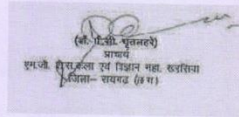 (डॉ. पी.सी. घृतलहरे)
प्राचार्य
एम.जी. शास. कला एवं विज्ञान महा. खरसिया
जिला– रायगढ़ (छ.ग.)